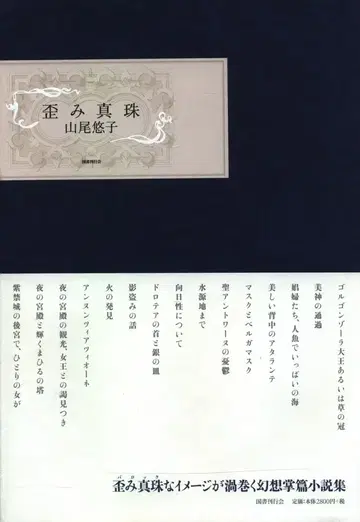 歪み真珠
山尾悠子
国書刊行会
ゴルゴンゾーラ大王あるいは草の冠
美神の通過
娼婦たち、人魚でいっぱいの海
美しい背中のアタランテ
マスクとベルガマスク
聖アントワーヌの憂鬱
水源地まで
向日性について
ドロテアの首と銀の皿
影盗みの話
火の発見
アンヌンツィアツィオーネ
夜の宮殿の観光、女王との謁見つき
夜の宮殿と輝くまひるの塔
紫禁城の後宮で、ひとりの女が
バロック
歪み真珠なイメージが渦巻く幻想掌篇小説集
国書刊行会 定価:本体2800円+税